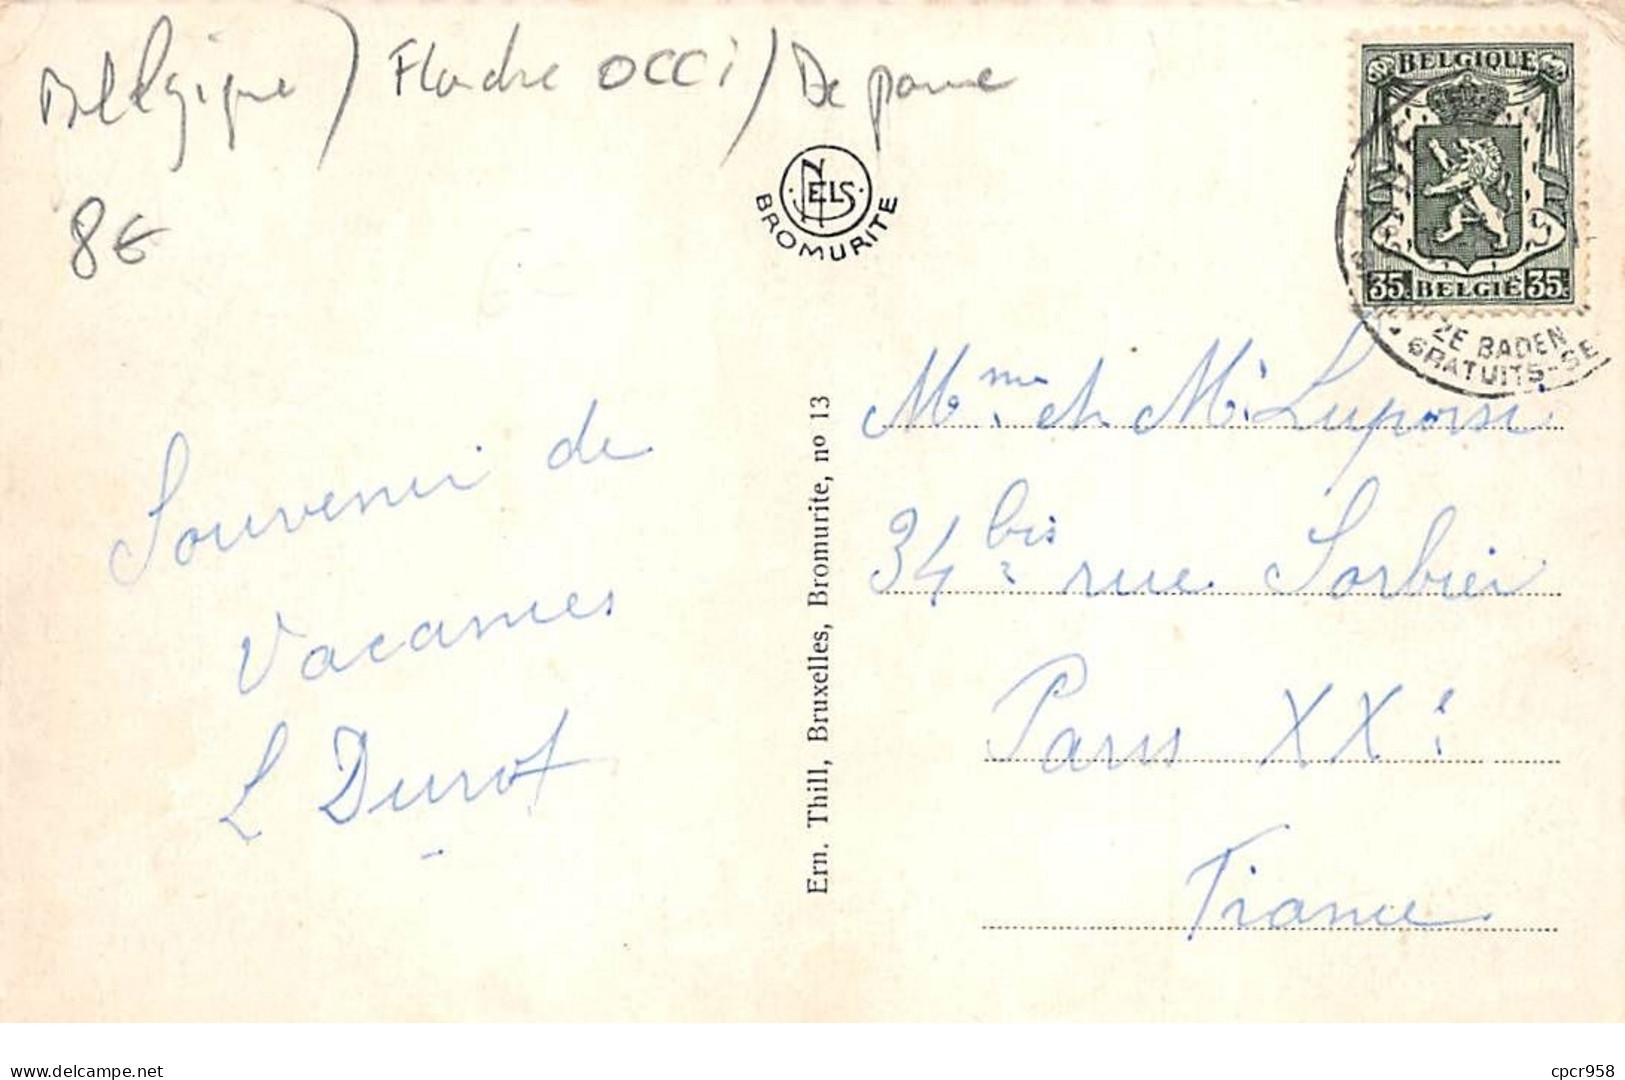 Belgique / Flandre OCCi / De panne
8€
NELS
BROMURITE
BELGIQUE
35 BELGIË 35
ZE BADEN
GRATUITS-SE
Ern. Thill, Bruxelles, Bromurite, nº 13
Souvenir de
Vacances
L Durot
Mme et Mr
34 bis rue Sorbier
Paris XXe
France
delcampe.net
cpcr958